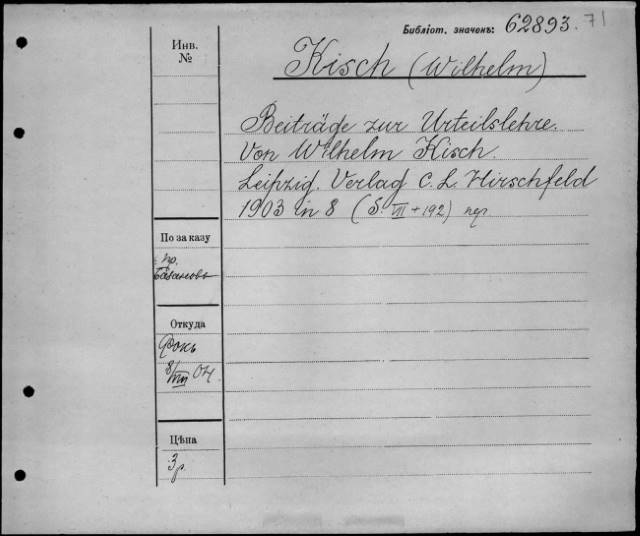 Библіот. значенъ: 62893. 71
Инв.
№
Kisch (Wilhelm)
Beiträge zur Urteilslehre.
Von Wilhelm Kisch.
Leipzig. Verlag C. L. Hirschfeld
1903 in 8 (S. VIII + 192) пер.
По заказу
пр.
Базанова
Откуда
Фокъ
8/VIII 04
Цѣна
3 р.